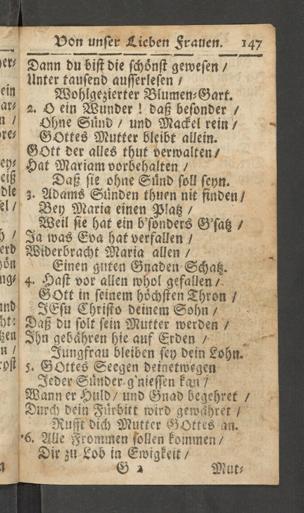 Von unser Lieben Frauen. 147
Dann du bist die schönst gewesen /
Unter tausend ausserlesen /
Wohlgezierter Blumen-Gart.
2. O ein Wunder ! daß besonder /
Ohne Sünd / und Mackel rein /
GOttes Mutter bleibt allein.
GOtt der alles thut verwalten /
Hat Mariam vorbehalten /
Daß sie ohne Sünd soll seyn.
3. Adams Sünden thuen nit finden /
Bey Maria einen Platz /
Weil sie hat ein b'sonders G'satz /
Ja was Eva hat verfallen /
Widerbracht Maria allen /
Einen guten Gnaden Schatz.
4. Hast vor allen whol gefallen /
GOtt in seinem höchsten Thron /
JEsu Christo deinem Sohn /
Daß du solt sein Mutter werden /
Ihn gebähren hie auf Erden /
Jungfrau bleiben sey dein Lohn.
5. GOttes Seegen deinetwegen
Jeder Sünder g'niessen kan /
Wann er Huld / und Gnad begehret /
Durch dein Fürbitt wird gewähret /
Rufft dich Mutter GOttes an.
6. Alle Frommen sollen kommen /
Dir zu Lob in Ewigkeit /
G 2 Mut-